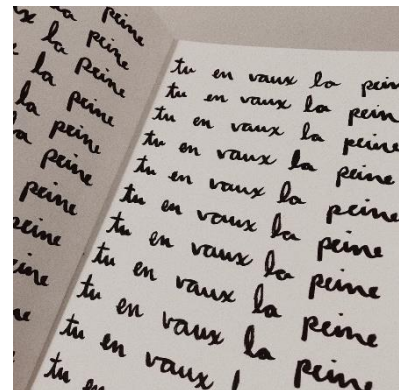 la peine
la peine
la peine
la peine
la peine
peine
peine
peine
tu en vaux la
tu en vaux la
tu en vaux la peine
tu en vaux la peine
tu en vaux la peine
tu en vaux la peine
tu en vaux la peine
tu en vaux la peine
tu en vaux la peine
tu en vaux
tu